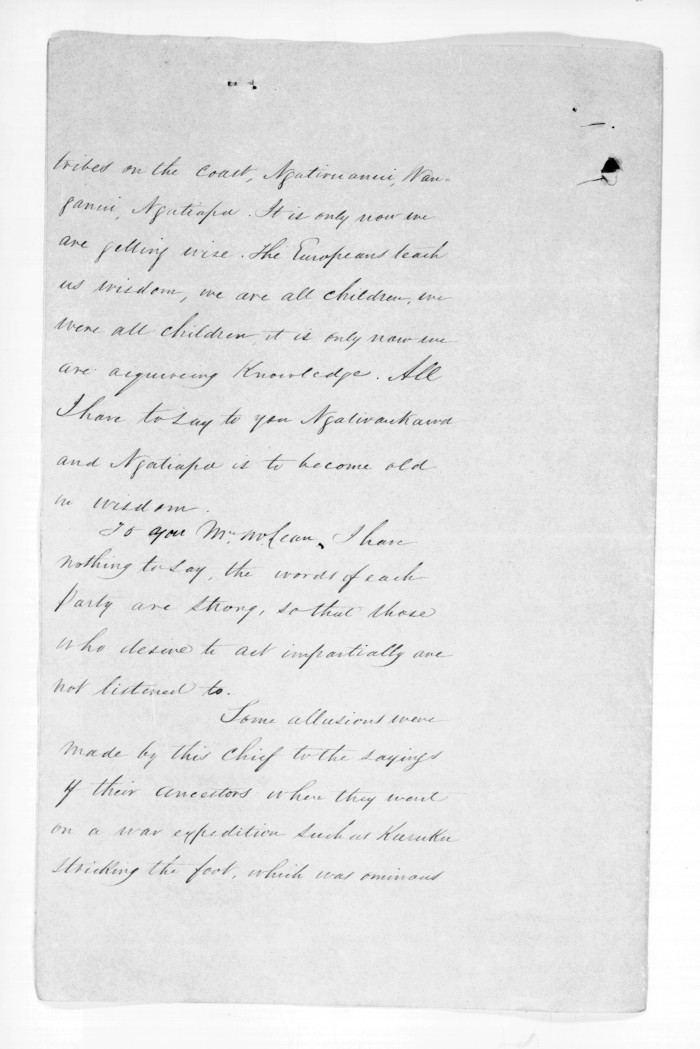 tribes on the coast, Ngatiruanui, Wan-
ganui, Ngatiapa. It is only now we
are getting wise. The Europeans teach
us wisdom, we are all children, we
were all children it is only now we
are acquireing Knowledge. All
I have to say to you Ngatiraukawa
and Ngatiapa is to become old
in wisdom.
To you Mr. McLean, I have
nothing to say, the words of each
Party are strong, so that those
who desire to act impartially are
not listened to.
Some allusions were
made by this chief to the sayings
of their ancestors when they went
on a war expedition such as Kuruku
stricking the foot, which was ominous